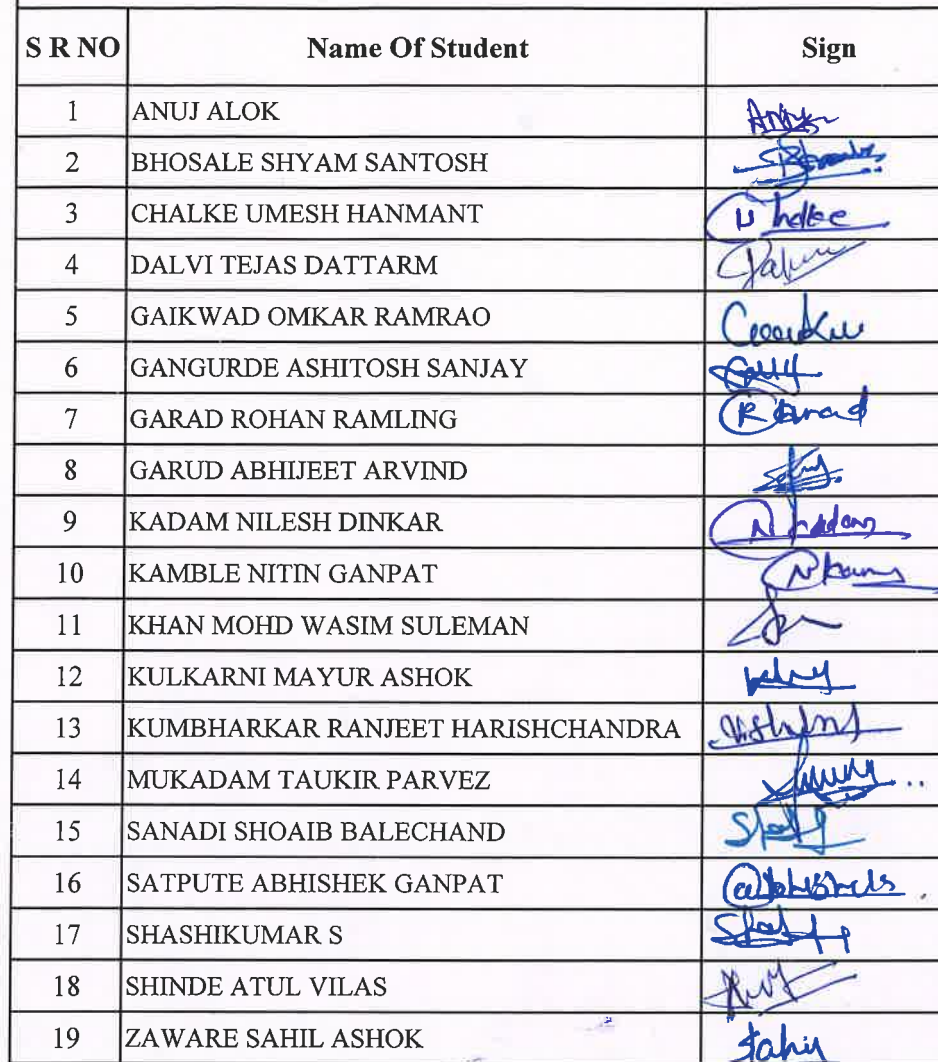 S R NO Name Of Student Sign
1 ANUJ ALOK Anuj
2 BHOSALE SHYAM SANTOSH
3 CHALKE UMESH HANMANT
4 DALVI TEJAS DATTARM
5 GAIKWAD OMKAR RAMRAO
6 GANGURDE ASHITOSH SANJAY
7 GARAD ROHAN RAMLING
8 GARUD ABHIJEET ARVIND
9 KADAM NILESH DINKAR
10 KAMBLE NITIN GANPAT
11 KHAN MOHD WASIM SULEMAN
12 KULKARNI MAYUR ASHOK
13 KUMBHARKAR RANJEET HARISHCHANDRA
14 MUKADAM TAUKIR PARVEZ
15 SANADI SHOAIB BALECHAND
16 SATPUTE ABHISHEK GANPAT
17 SHASHIKUMAR S
18 SHINDE ATUL VILAS
19 ZAWARE SAHIL ASHOK